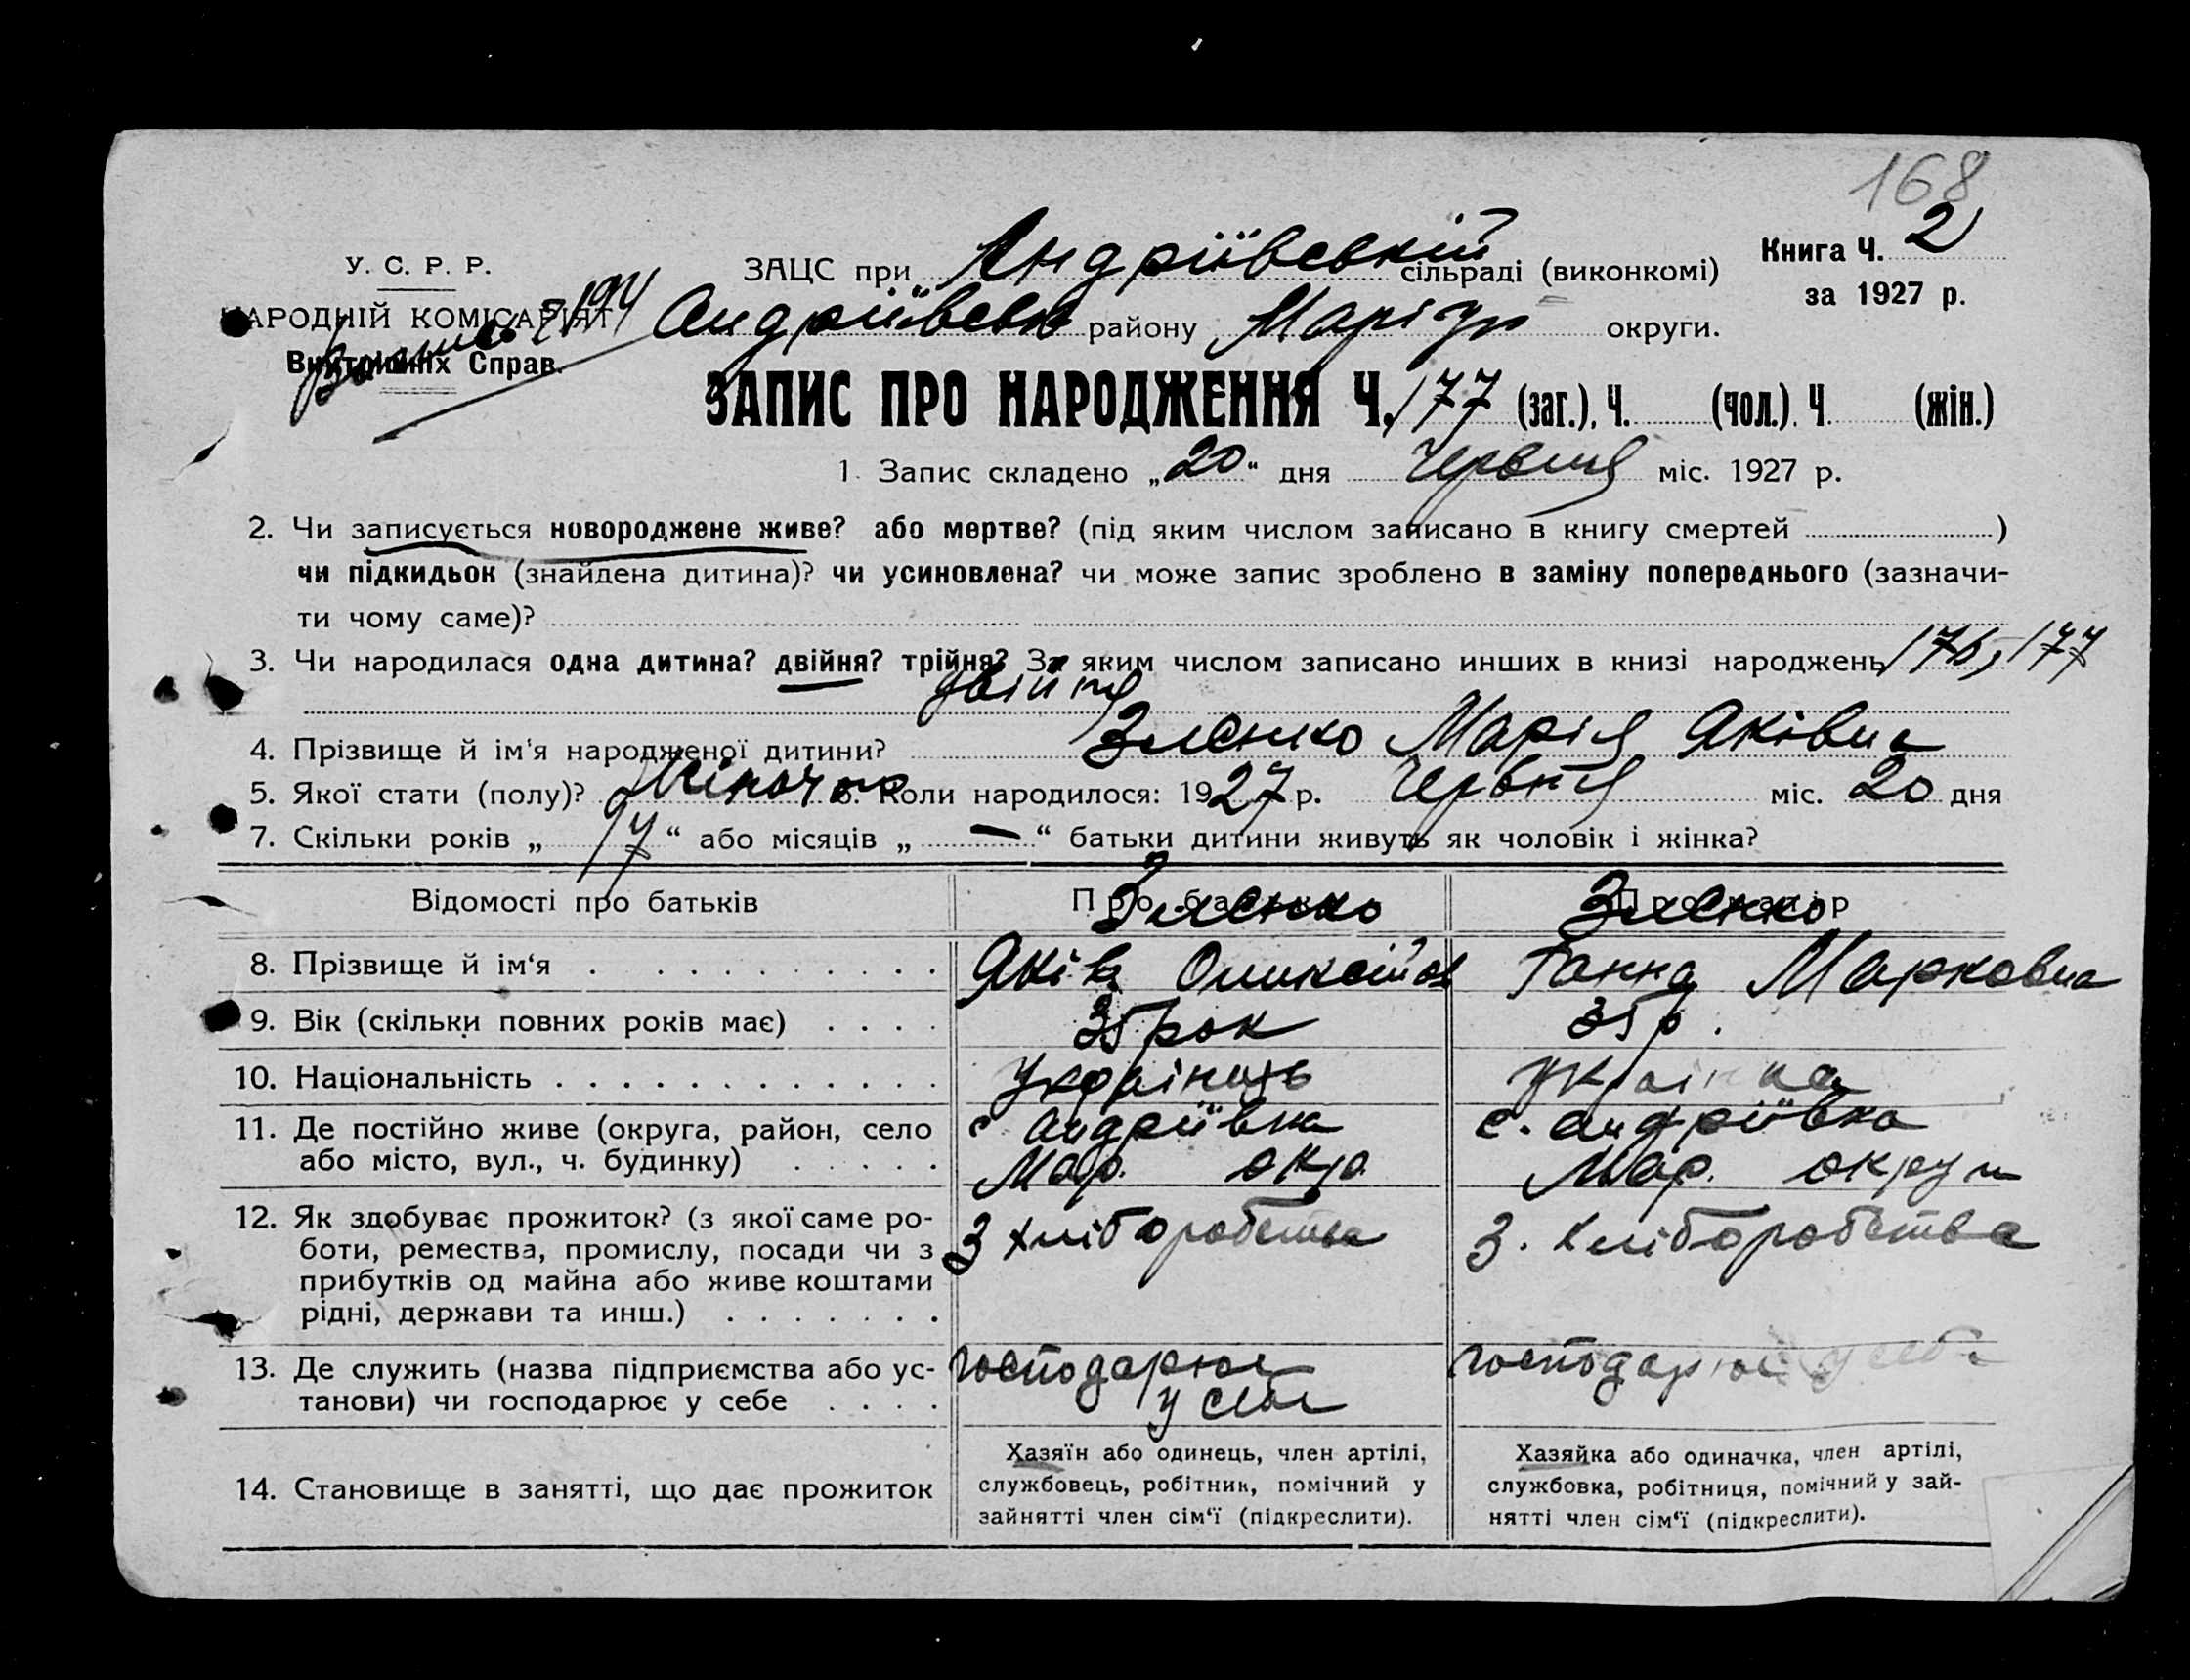 168
У. С. Р. Р.
НАРОДНІЙ КОМІСАРІЯТ
Внутрішніх Справ.
ЗАЦС при Андріївській сільраді (виконкомі)
Книга Ч. 2
за 1927 р.
Андріївськ району Маріуп округи.
ЗАПИС ПРО НАРОДЖЕННЯ Ч. 177 (заг.), Ч. (чол.). Ч (жін.)
1. Запис складено „20“ дня Червня міс. 1927 р.
2. Чи записується новороджене живе? або мертве? (під яким числом записано в книгу смертей )
чи підкидьок (знайдена дитина)? чи усиновлена? чи може запис зроблено в заміну попереднього (зазначи-
ти чому саме)?
3. Чи народилася одна дитина? двійня? трійня? За яким числом записано инших в книзі народжень 176, 177
двійня
4. Прізвище й ім'я народженої дитини? Зленко Марія Яківна
5. Якої стати (полу)? Жіноч 6. Коли народилося: 1927 р. Червня міс. 20 дня
7. Скільки років „17“ або місяців „—“ батьки дитини живуть як чоловік і жінка?
Відомості про батьків Про батька Про матір
Зленко Зленко
8. Прізвище й ім‘я Яків Ганна Марковна
9. Вік (скільки повних років має) 35 рок 35 р.
10. Національність Українець Українка
11. Де постійно живе (округа, район, село с Андріївка с. Андріївка
або місто, вул., ч. будинку) Мар. окр. Мар. округи
12. Як здобуває прожиток? (з якої саме ро- З хліборобства З. хліборобства
боти, ремества, промислу, посади чи з
прибутків од майна або живе коштами
рідні, держави та инш.)
13. Де служить (назва підприємства або ус- господарює господарює у себе
танови) чи господарює у себе у себе
14. Становище в занятті, що дає прожиток
Хазяїн або одинець, член артілі,
службовець, робітник, помічний у
зайнятті член сім‘ї (підкреслити).
Хазяйка або одиначка, член артілі,
службовка, робітниця, помічний у зай-
нятті член сім‘ї (підкреслити).